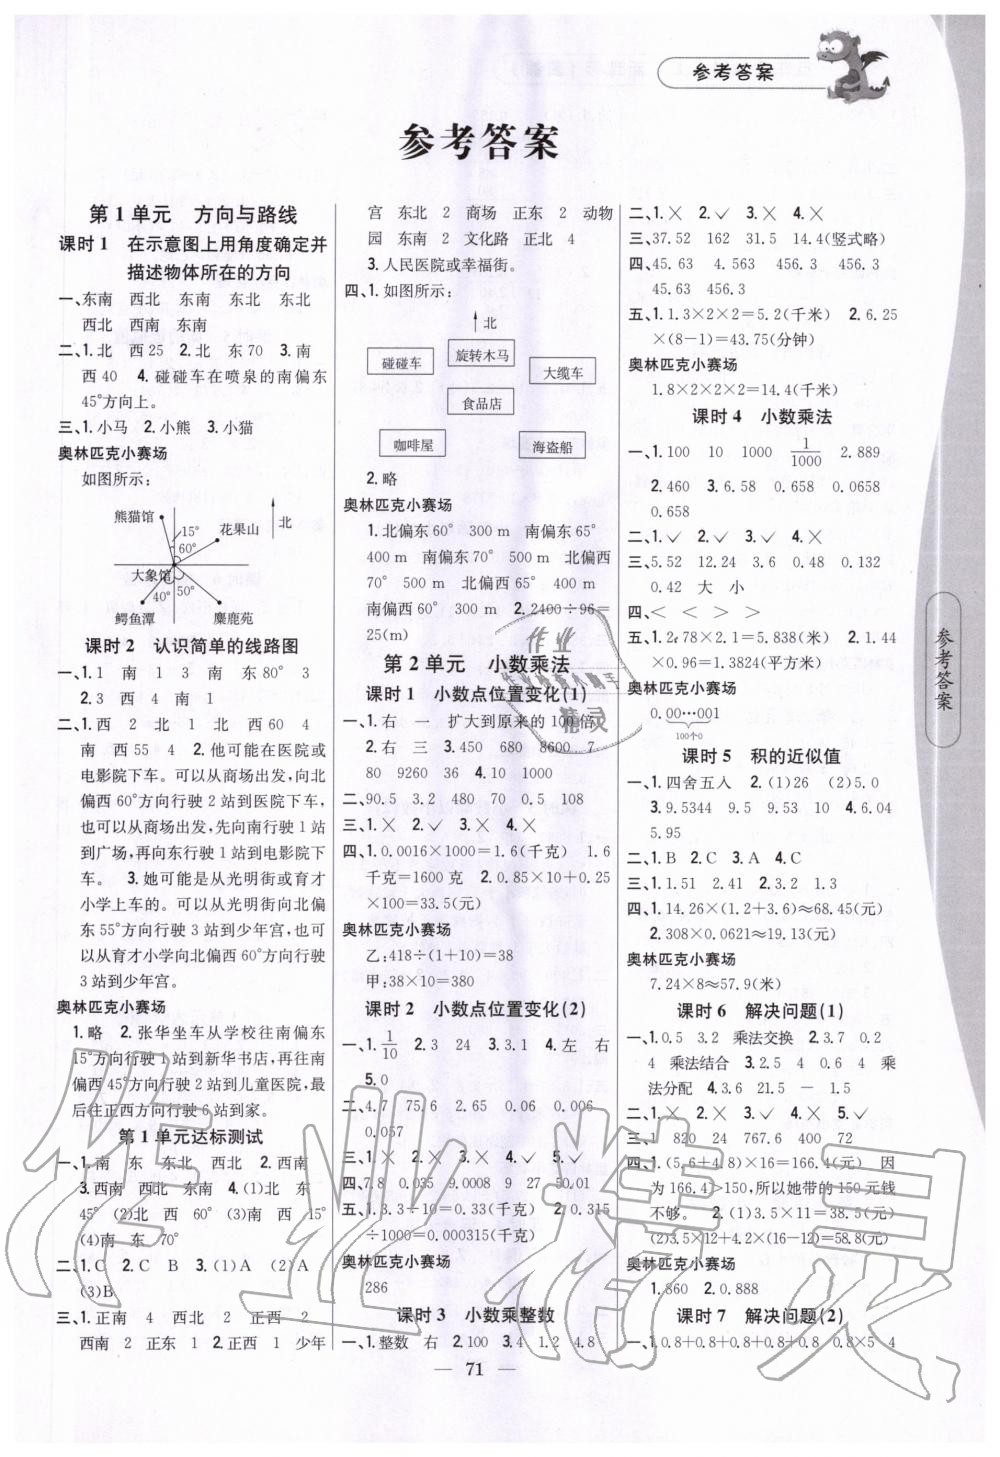 参考答案
参考答案
第1单元 方向与路线
课时1 在示意图上用角度确定并
描述物体所在的方向
一、东南 西北 东南 东北 东北
西北 西南 东南
二、1.北 西25 2.北 东70 3.南
西40 4.碰碰车在喷泉的南偏东
45°方向上。
三、1.小马 2.小熊 3.小猫
奥林匹克小赛场
如图所示:
熊猫馆
15°
花果山
北
60°
大象馆
40°
50°
鳄鱼潭
麋鹿苑
课时2 认识简单的线路图
一、1.1 南 1 3 南 东80° 3
2.3 西 4 南 1
二、1.西 2 北 1 北 西60 4
南 西55 4 2.他可能在医院或
电影院下车。可以从商场出发,向北
偏西60°方向行驶2站到医院下车,
也可以从商场出发,先向南行驶1站
到广场,再向东行驶1站到电影院下
车。 3.她可能是从光明街或育才
小学上车的。可以从光明街向北偏
东55°方向行驶3站到少年宫,也可
以从育才小学向北偏西60°方向行驶
3站到少年宫。
奥林匹克小赛场
1.略 2.张华坐车从学校往南偏东
15°方向行驶1站到新华书店,再往南
偏西45°方向行驶2站到儿童医院,最
后往正西方向行驶6站到家。
第1单元达标测试
一、1.南 东 东北 西北 2.西南
3.西南 西北 东南 4.(1)北 东
45° (2)北 西 60° (3)南 西 15°
(4)南 东 70°
二、1.C 2.C B 3.(1)A (2)A
(3)B
三、1.正南 4 西北 2 正西 2
西南 2 正东 1 2.正西 1 少年
宫 东北 2 商场 正东 2 动物
园 东南 2 文化路 正北 4
3.人民医院或幸福街。
四、1.如图所示:
北
碰碰车
旋转木马
大缆车
食品店
咖啡屋
海盗船
2.略
奥林匹克小赛场
1.北偏东60° 300 m 南偏东65°
400 m 南偏东70° 500 m 北偏西
70° 500 m 北偏西65° 400 m
南偏西60° 300 m 2.2400÷96=
25(m)
第2单元 小数乘法
课时1 小数点位置变化(1)
一、1.右 一 扩大到原来的100倍
2.右 三 3.450 680 8600 7
80 9260 36 4.10 1000
二、90.5 3.2 480 70 0.5 108
三、1.× 2.✓ 3.× 4.×
四、1.0.0016×1000=1.6(千克) 1.6
千克=1600克 2.0.85×10+0.25
×100=33.5(元)
奥林匹克小赛场
乙:418÷(1+10)=38
甲:38×10=380
课时2 小数点位置变化(2)
一、1.1/10 2.3 24 3.3.1 4.左 右
5.0
二、4.7 75.6 2.65 0.06 0.006
0.057
三、1.× 2.× 3.× 4.✓ 5.✓
四、7.8 0.035 9.0008 9 27 50.01
五、1.3.3÷10=0.33(千克) 2.0.315
÷1000=0.000315(千克)
奥林匹克小赛场
286
课时3 小数乘整数
一、1.整数 右 2.100 3.4 1.2 4.8
二、1.× 2.✓ 3.× 4.×
三、37.52 162 31.5 14.4(竖式略)
四、45.63 4.563 456.3 456.3
45.63 456.3
五、1.1.3×2×2=5.2(千米) 2.6.25
×(8-1)=43.75(分钟)
奥林匹克小赛场
1.8×2×2×2=14.4(千米)
课时4 小数乘法
一、1.100 10 1000 1/1000 2.889
2.460 3.6.58 0.658 0.0658
0.658
二、1.✓ 2.✓ 3.✓ 4.×
三、5.52 12.24 3.6 0.48 0.132
0.42 大 小
四、< < > >
五、1.2.78×2.1=5.838(米) 2.1.44
×0.96=1.3824(平方米)
奥林匹克小赛场
0.00…001
100个0
课时5 积的近似值
一、1.四舍五入 2.(1)26 (2)5.0
3.9.5344 9.5 9.53 10 4.6.04
5.95
二、1.B 2.C 3.A 4.C
三、1.1.51 2.41 2.3.2 1.3
四、1.14.26×(1.2+3.6)≈68.45(元)
2.308×0.0621≈19.13(元)
奥林匹克小赛场
7.24×8≈57.9(米)
课时6 解决问题(1)
一、1.0.5 3.2 乘法交换 2.3.7 0.2
4 乘法结合 3.2.5 4 0.6 4 乘
法分配 4.3.6 21.5 - 1.5
二、1.× 2.× 3.✓ 4.× 5.✓
三、1 820 24 767.6 400 72
四、1.(5.6+4.8)×16=166.4(元) 因
为166.4>150,所以她带的150元钱
不够。 2.(1)3.5×11=38.5(元)
(2)3.5×12+4.2×(16-12)=58.8(元)
奥林匹克小赛场
1.860 2.0.888
课时7 解决问题(2)
一、1.0.8+0.8+0.8+0.8+0.8 0.8×5 4
参考答案
— 71 —
作业精灵